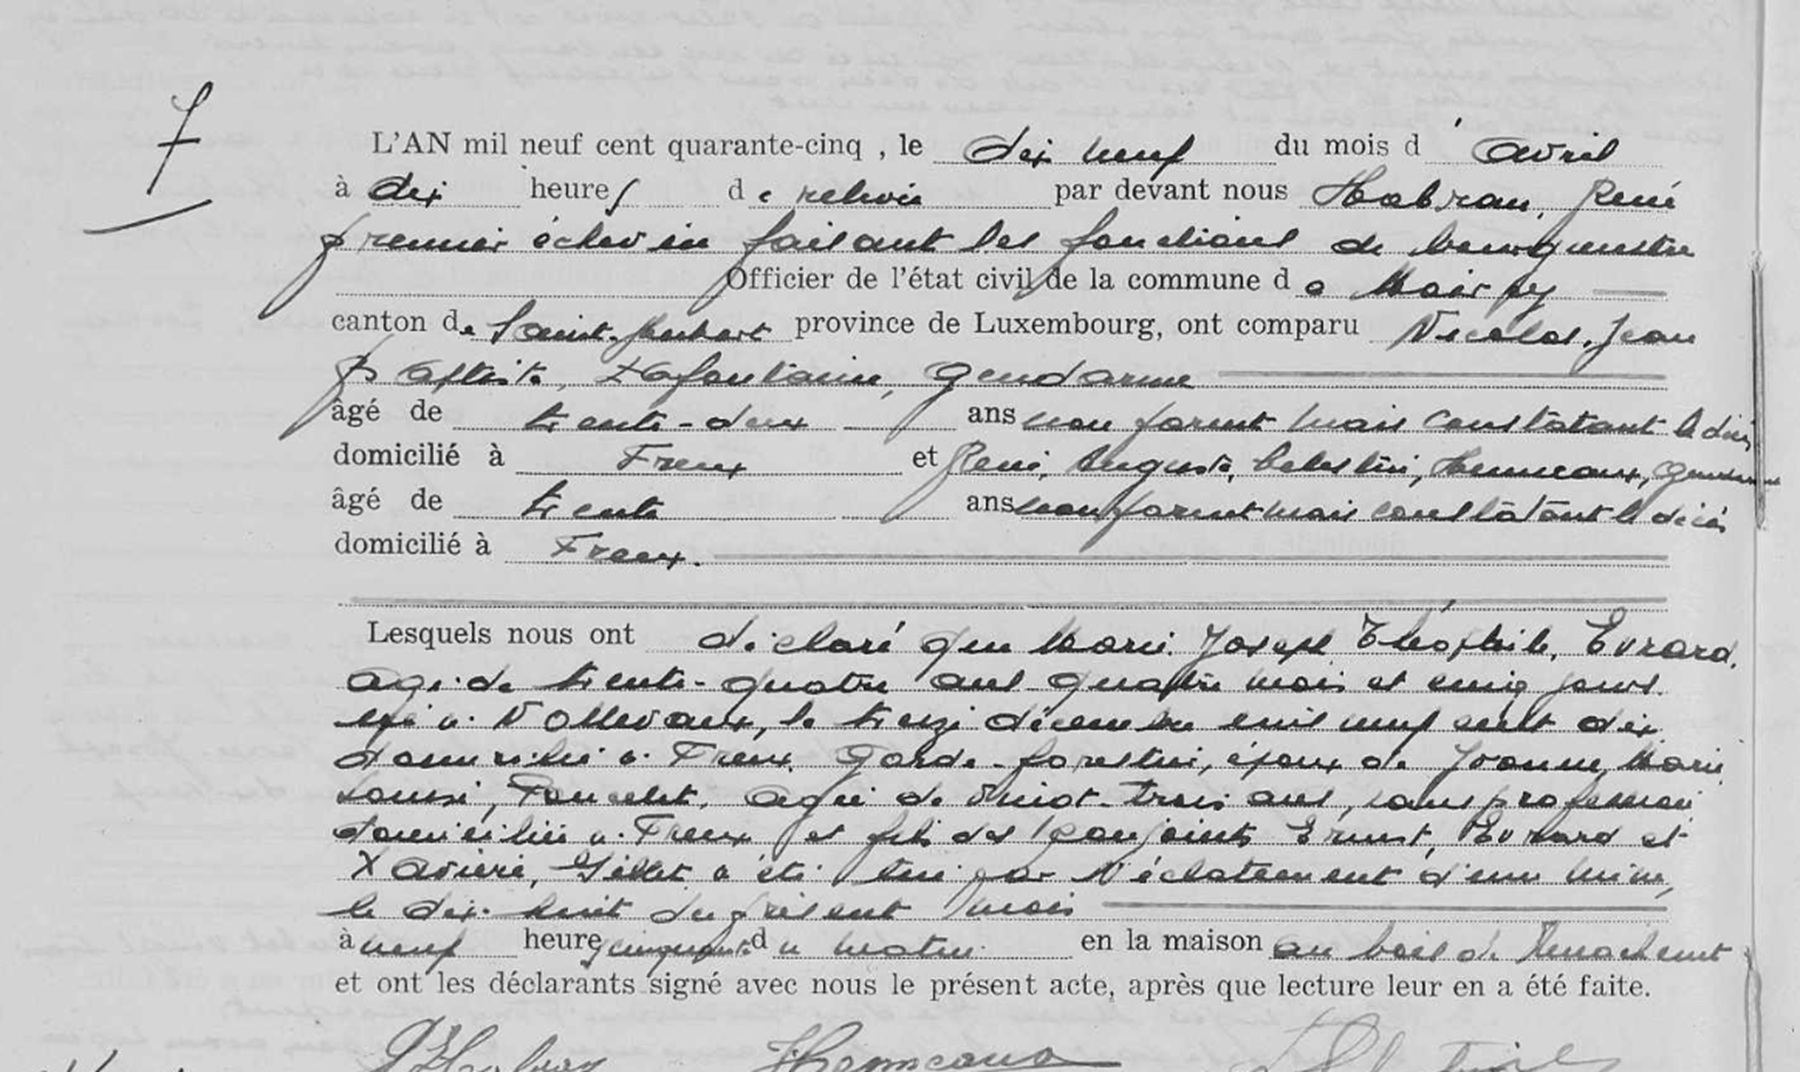 7
L'AN mil neuf cent quarante-cinq , le dix neuf du mois d' avril
à dix heures de relevée par devant nous Habran, René
premier échevin faisant les fonctions de bourgmestre
Officier de l'état civil de la commune de Moircy
canton de Saint-Hubert province de Luxembourg, ont comparu Nicolas, Jean
Baptiste, Lafontaine, gendarme
âgé de trente-deux ans non parent mais constatant le décès
domicilié à Freux et René, Auguste, Celestin, Henneaux, gendarme
âgé de trente ans non parent mais constatant le décès
domicilié à Freux.
Lesquels nous ont déclaré que Marie, Joseph, Théophile, Evrard,
agé de trente-quatre ans quatre mois et cinq jours
né à Vollevaux, le treize décembre mil neuf cent dix
domicilié à Freux, Garde-forestier, époux de Yvonne, Marie
Louise, Poncelet, agée de vingt-trois ans, sans profession
domiciliée à Freux et fils des conjoints Ernest, Evrard et
Xavière, Gillet a été tué par l'éclatement d'une mine,
le dix-huit du présent mois
à neuf heures cinquante du matin en la maison au bois de
et ont les déclarants signé avec nous le présent acte, après que lecture leur en a été faite.
R Habran Henneaux